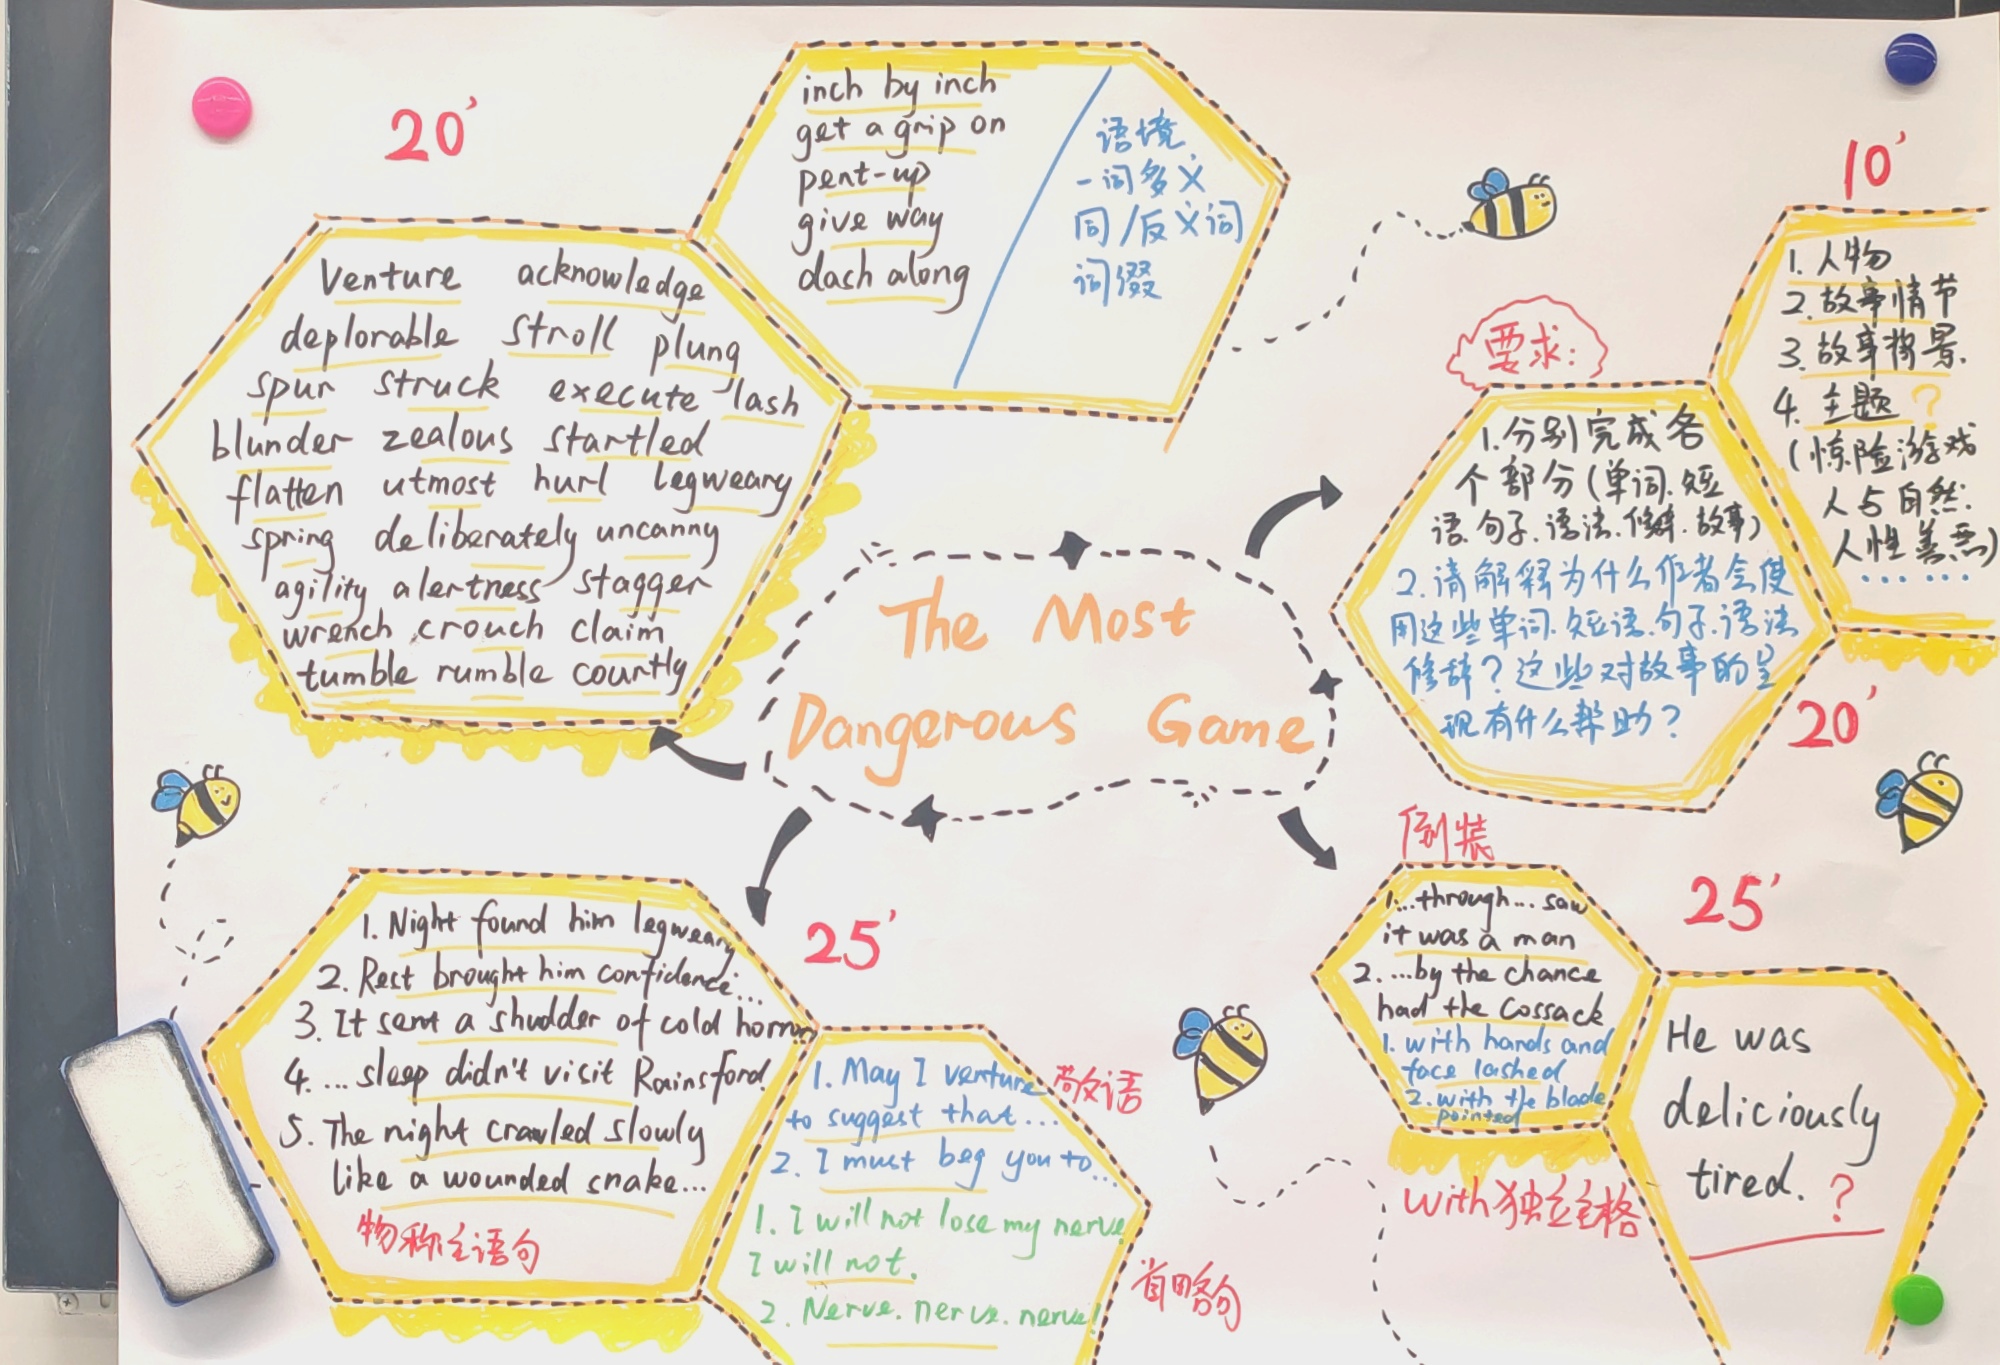 20'
venture acknowledge
deplorable stroll plung
spur struck execute lash
blunder zealous startled
flatten utmost hurl legweary
spring deliberately uncanny
agility alertness stagger
wrench crouch claim
tumble rumble courtly
inch by inch
get a grip on
pent-up
give way
dash along
语境
一词多义
同/反义词
词缀
The Most
Dangerous Game
要求:
1.分别完成各
个部分(单词.短
语.句子.语法.修辞.故事)
2.请解释为什么作者会使
用这些单词.短语.句子.语法
修辞?这些对故事的呈
现有什么帮助?
20'
10'
1.人物
2.故事情节
3.故事背景.
4.主题?
(惊险游戏
人与自然.
人性善恶)
......
25'
1. Night found him legweary
2. Rest brought him confidence...
3. It sent a shudder of cold horror
4. ...sleep didn't visit Rainsford.
5. The night crawled slowly
like a wounded snake...
物称主语句
1. May I venture
to suggest that...
2. I must beg you to...
敬语
1. I will not lose my nerve
I will not.
2. Nerve. nerve. nerve!
省略句
倒装
25'
1...through... saw
it was a man
2. ...by the chance
had the Cossack
1. with hands and
face lashed
2. with the blade
pointed
with独立主格
He was
deliciously
tired. ?